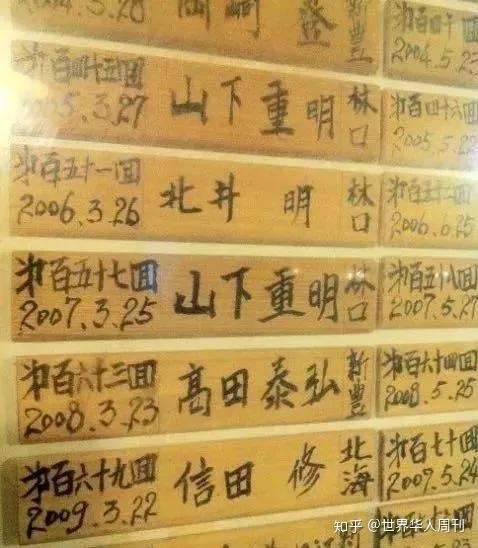 2004.3.28 岡﨑 登 新豊
2004.5.23
才百四十五回
2005.3.27 山下重明 林口
才百四十六回
2005.5.22
才百五十一回
2006.3.26 北井 明 林口
才百五十二回
2006.6.25
才百五十七回
2007.3.25 山下重明 林口
才百五十八回
2007.5.27
才百六十三回
2008.3.23 高田泰弘 新豊
才百六十四回
2008.5.25
才百六十九回
2009.3.22 信田 修 北海
才百七十回
2007.5.24
知乎 @世界华人周刊